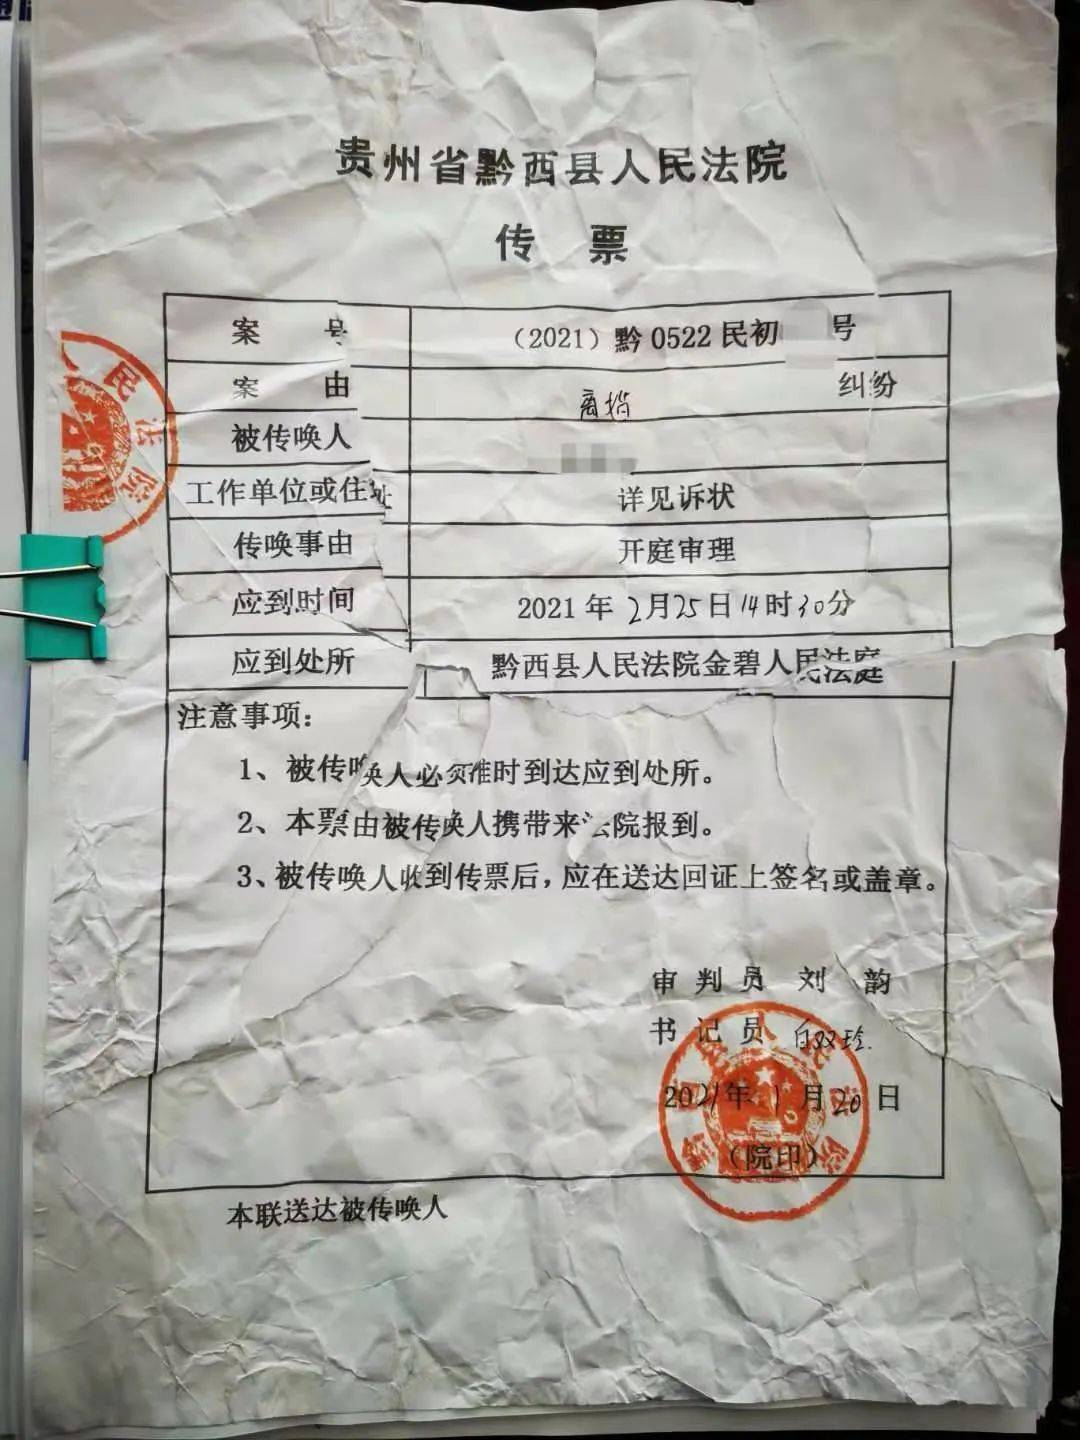 贵州省黔西县人民法院
传 票
案 号 （2021）黔 0522 民初 号
案 由 离婚 纠纷
被传唤人
工作单位或住址 详见诉状
传唤事由 开庭审理
应到时间 2021 年 2月25日14时30分
应到处所 黔西县人民法院金碧人民法庭
注意事项：
1、被传唤人必须准时到达应到处所。
2、本票由被传唤人携带来法院报到。
3、被传唤人收到传票后，应在送达回证上签名或盖章。
审 判 员 刘 韵
书 记 员 白双玲
2021年1月20日
（院印）
本联送达被传唤人
人民法院